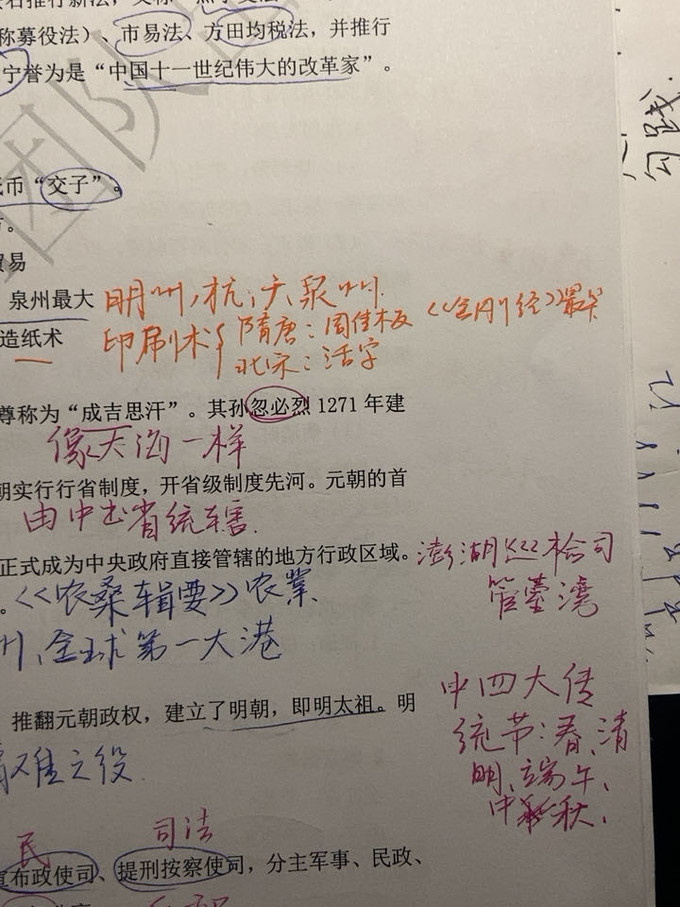 石推行新法，又称
称募役法）、市易法、方田均税法，并推行
宁誉为是“中国十一世纪伟大的改革家”。
团队
币“交子”。
贸易
泉州最大 明州、杭、广、泉州
造纸术 印刷术{隋唐：周佳板《金刚经》最早
北宋：活字
尊称为“成吉思汗”。其孙忽必烈 1271 年建
像大海一样
朝实行行省制度，开省级制度先河。元朝的首
由中书省统辖.
正式成为中央政府直接管辖的地方行政区域。 澎湖巡检司
管臺灣
。《农桑辑要》农業
州、全球第一大港
推翻元朝政权，建立了明朝，即明太祖。明
中四大传
统节：春、清
明、端午、
中秋.
难之役
民 司法
宣布政使司、提刑按察使司，分主军事、民政、
勾践.